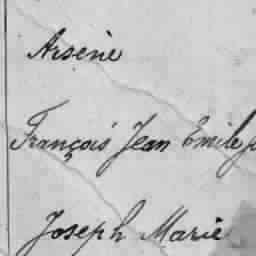 Arsène
François Jean Emile
Joseph Marie